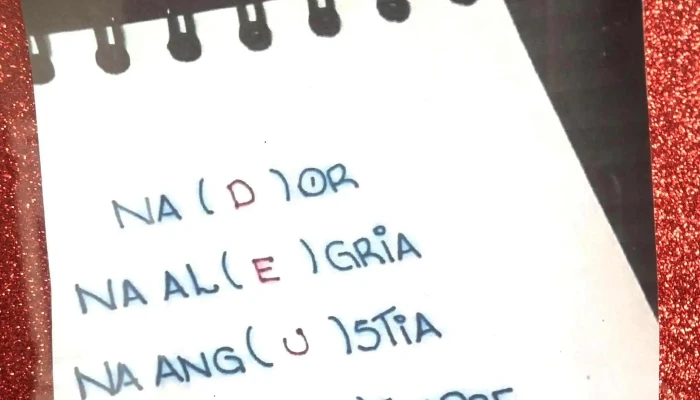 NA (D)OR
NA AL(E)GRiA
NA ANG(U)STiA